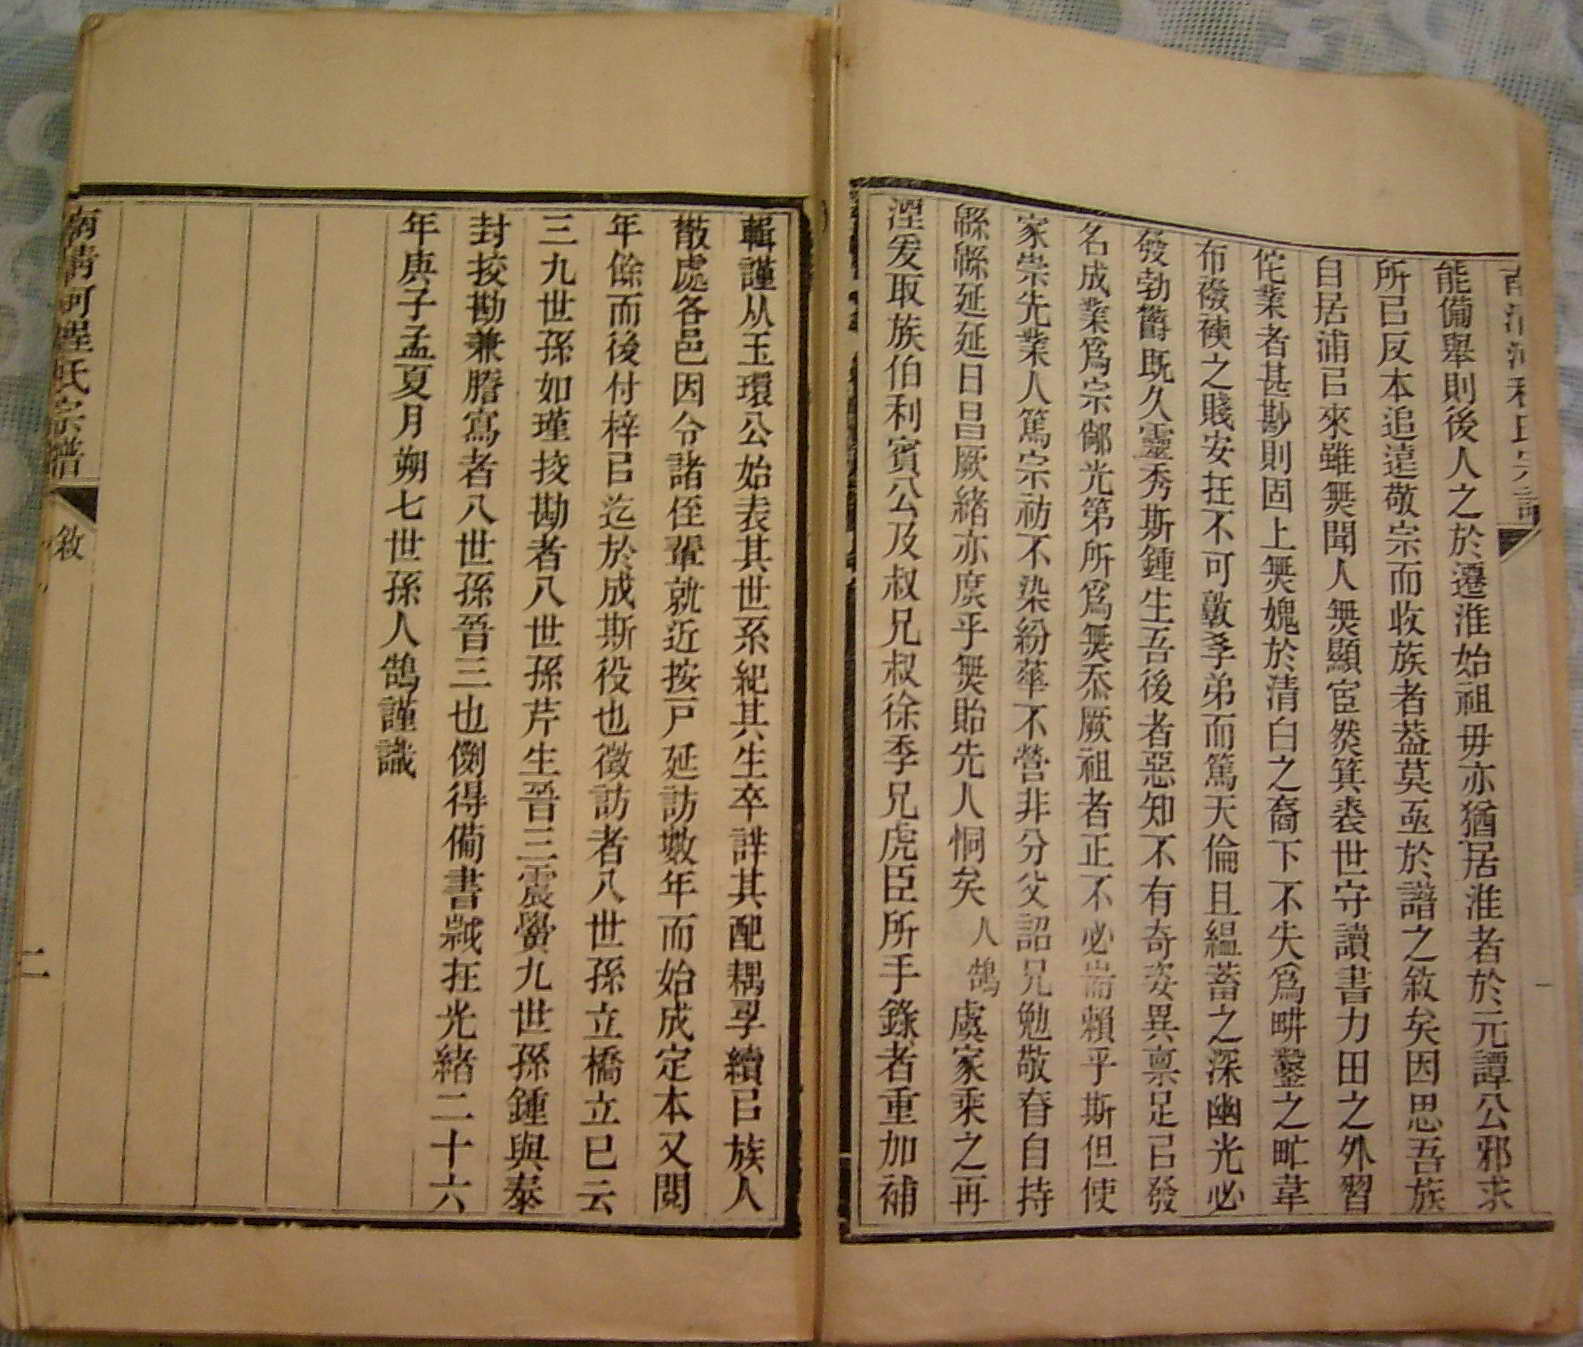 南清河程氏宗譜
能備舉則後人之於遷淮始祖毋亦猶居淮者於元譚公邪求
所㠯反本追遠敬宗而收族者葢莫亟於譜之敘矣因思吾族
自居浦㠯來雖無聞人無顯宦然箕裘世守讀書力田之外習
侘業者甚尠則固上無媿於清白之裔下不失爲畊鑿之甿韋
布襏襫之賤安在不可敦孝弟而篤天倫且緼蓄之深幽光必
發勃鬱既久靈秀斯鍾生吾後者惡知不有奇姿異稟足㠯發
名成業爲宗鄰光第所爲無忝厥祖者正不必耑賴乎斯但使
家崇先業人篤宗祊不染紛華不營非分父詔兄勉敬眘自持
緜緜延延日昌厥緒亦庶乎無貽先人恫矣人鵠虞家乘之再
湮爰取族伯利賓公及叔兄叔徐季兄虎臣所手錄者重加補
輯謹从玉環公始表其世系紀其生卒詳其配耦孚續㠯族人
散處各邑因令諸侄輩就近按戶延訪數年而始成定本又閱
年餘而後付梓㠯迄於成斯役也徵訪者八世孫立橋立巳云
三九世孫如瑾挍勘者八世孫芹生晉三震黌九世孫鍾與泰
封挍勘兼謄寫者八世孫晉三也例得備書時在光緒二十六
年庚子孟夏月朔七世孫人鵠謹識
南清河程氏宗譜
敘
二